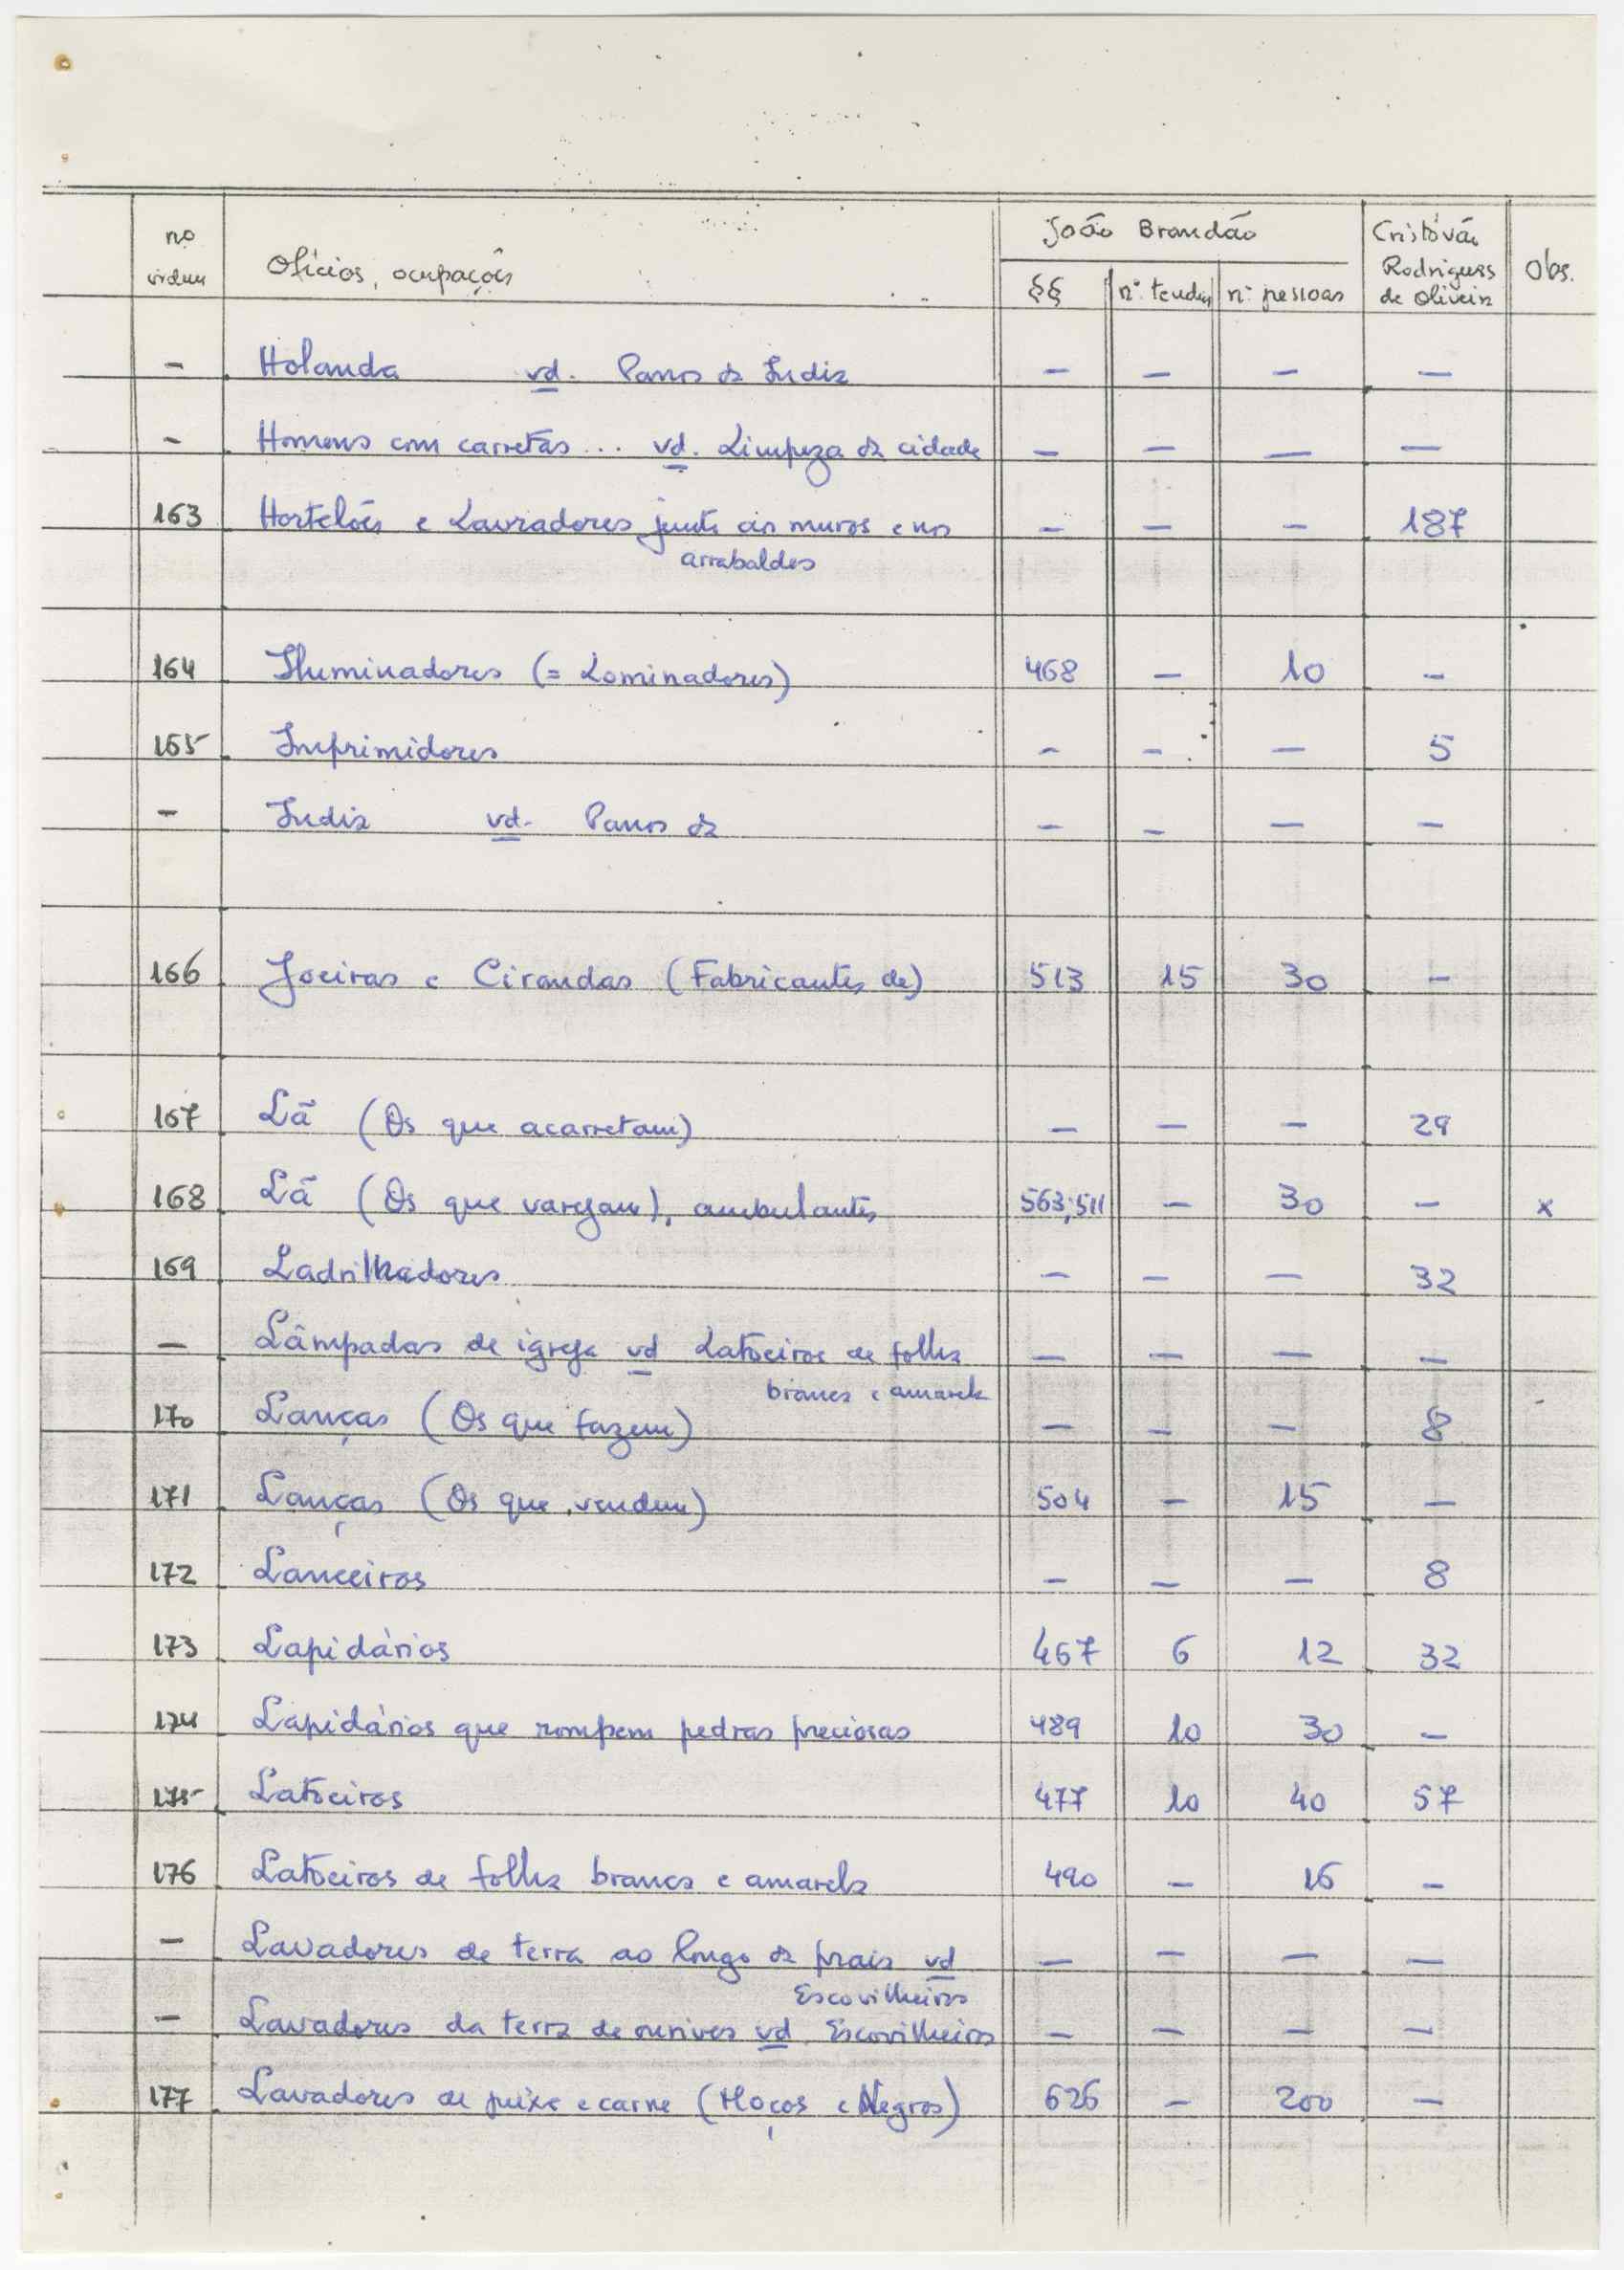 nº ordem Ofícios, ocupações João Brandão Cristóvão Rodrigues de Oliveira Obs.
§§ nº tendas nº pessoas
– Holanda vd. Panos da India – – – –
– Homens com carretas ... vd. Limpeza da cidade – – – –
163 Hortelões e Lavradores junto aos muros e nos – – – 187
arrabaldes
164 Iluminadores (= Lominadores) 468 – 10 –
165 Imprimidores – – – 5
– India vd. Panos da – – – –
166 Joeiras e Cirandas (Fabricantes de) 513 15 30 –
167 Lã (Os que acarretam) – – – 29
168 Lã (Os que varejam), ambulantes 563;511 – 30 – x
169 Ladrilhadores – – – 32
– Lâmpadas de igreja vd Latoeiros de folha – – – –
branca e amarela
170 Lanças (Os que fazem) – – – 8
171 Lanças (Os que vendem) 504 – 15 –
172 Lanceiros – – – 8
173 Lapidários 467 6 12 32
174 Lapidários que rompem pedras preciosas 489 10 30 –
175 Latoeiros 477 10 40 57
176 Latoeiros de folha branca e amarela 490 – 16 –
– Lavadores de terra ao longo da praia vd – – – –
Escovilheiros
– Lavadores da terra de ourives vd Escovilheiros – – – –
177 Lavadores de peixe e carne (Moços e Negros) 626 – 200 –